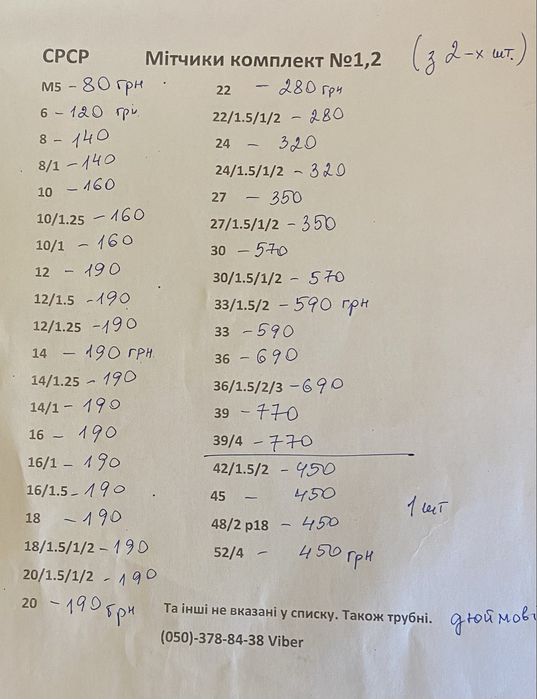 СРСР Мітчики комплект №1,2 (з 2-х шт.)
М5 - 80 грн
6 - 120 грн
8 - 140
8/1 - 140
10 - 160
10/1.25 - 160
10/1 - 160
12 - 190
12/1.5 - 190
12/1.25 - 190
14 - 190 грн
14/1.25 - 190
14/1 - 190
16 - 190
16/1 - 190
16/1.5 - 190
18 - 190
18/1.5/1/2 - 190
20/1.5/1/2 - 190
20 - 190 грн
22 - 280 грн
22/1.5/1/2 - 280
24 - 320
24/1.5/1/2 - 320
27 - 350
27/1.5/1/2 - 350
30 - 570
30/1.5/1/2 - 570
33/1.5/2 - 590 грн
33 - 590
36 - 690
36/1.5/2/3 - 690
39 - 770
39/4 - 770
42/1.5/2 - 450
45 - 450
1 шт
48/2 р18 - 450
52/4 - 450 грн
Та інші не вказані у списку. Також трубні. дюймові
(050)-378-84-38 Viber